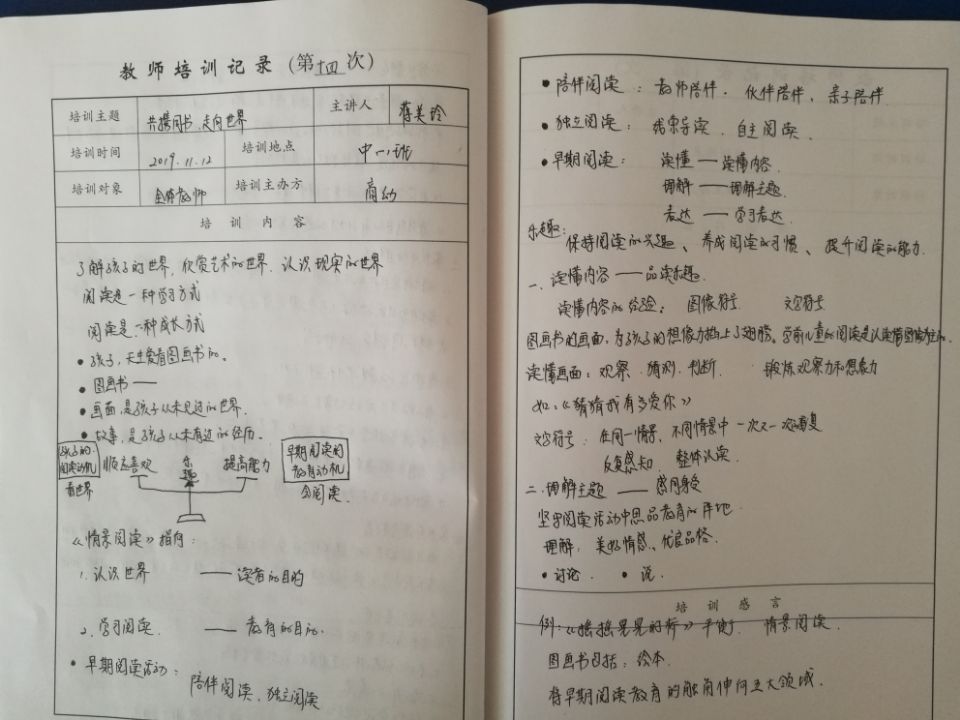 教师培训记录（第十四次）
培训主题 共携图书,走向世界 主讲人 蒋美玲
培训时间 2019.11.12 培训地点 中一班
培训对象 全体教师 培训主办方 高幼
培训内容
了解孩子的世界,欣赏艺术的世界.认识现实的世界
阅读是一种学习方式
阅读是一种成长方式
• 孩子,天生爱看图画书的。
• 图画书——
• 画面,是孩子从未见过的世界.
• 故事,是孩子从未有过的经历。
孩子的阅读动机 看世界
顺应喜欢 乐趣 提高能力
早期阅读的教育动机 会阅读.
《情景阅读》指向:
1.认识世界 —— 读者的目的
2.学习阅读. —— 教育的目的.
• 早期阅读活动:
陪伴阅读、独立阅读
• 陪伴阅读: 教师陪伴. 伙伴陪伴、亲子陪伴
• 独立阅读: 线索导读、自主阅读.
• 早期阅读: 读懂——读懂内容
理解——理解主题
表达——学习表达.
乐趣:
保持阅读的兴趣、养成阅读的习惯、提升阅读的能力.
一、读懂内容——品读乐趣
读懂内容的经验: 图像符号 文字符号
图画书的画面,为孩子的想像力插上了翅膀。学前儿童的阅读是从读懂图像为主的.
读懂画面: 观察、猜测.判断. 锻炼观察力和想象力
如:《猜猜我有多爱你》
文字符号: 在同一情景、不同情景中一次又一次重复
反复感知、整体认读.
二.理解主题 —— 感同身受
坚守阅读活动中思品教育的阵地.
理解: 美好情感、优良品格.
• 讨论. • 说.
培训感言
例:《摇摇晃晃的桥》平衡 情景阅读.
图画书包括: 绘本.
将早期阅读教育的触角伸向五大领域.